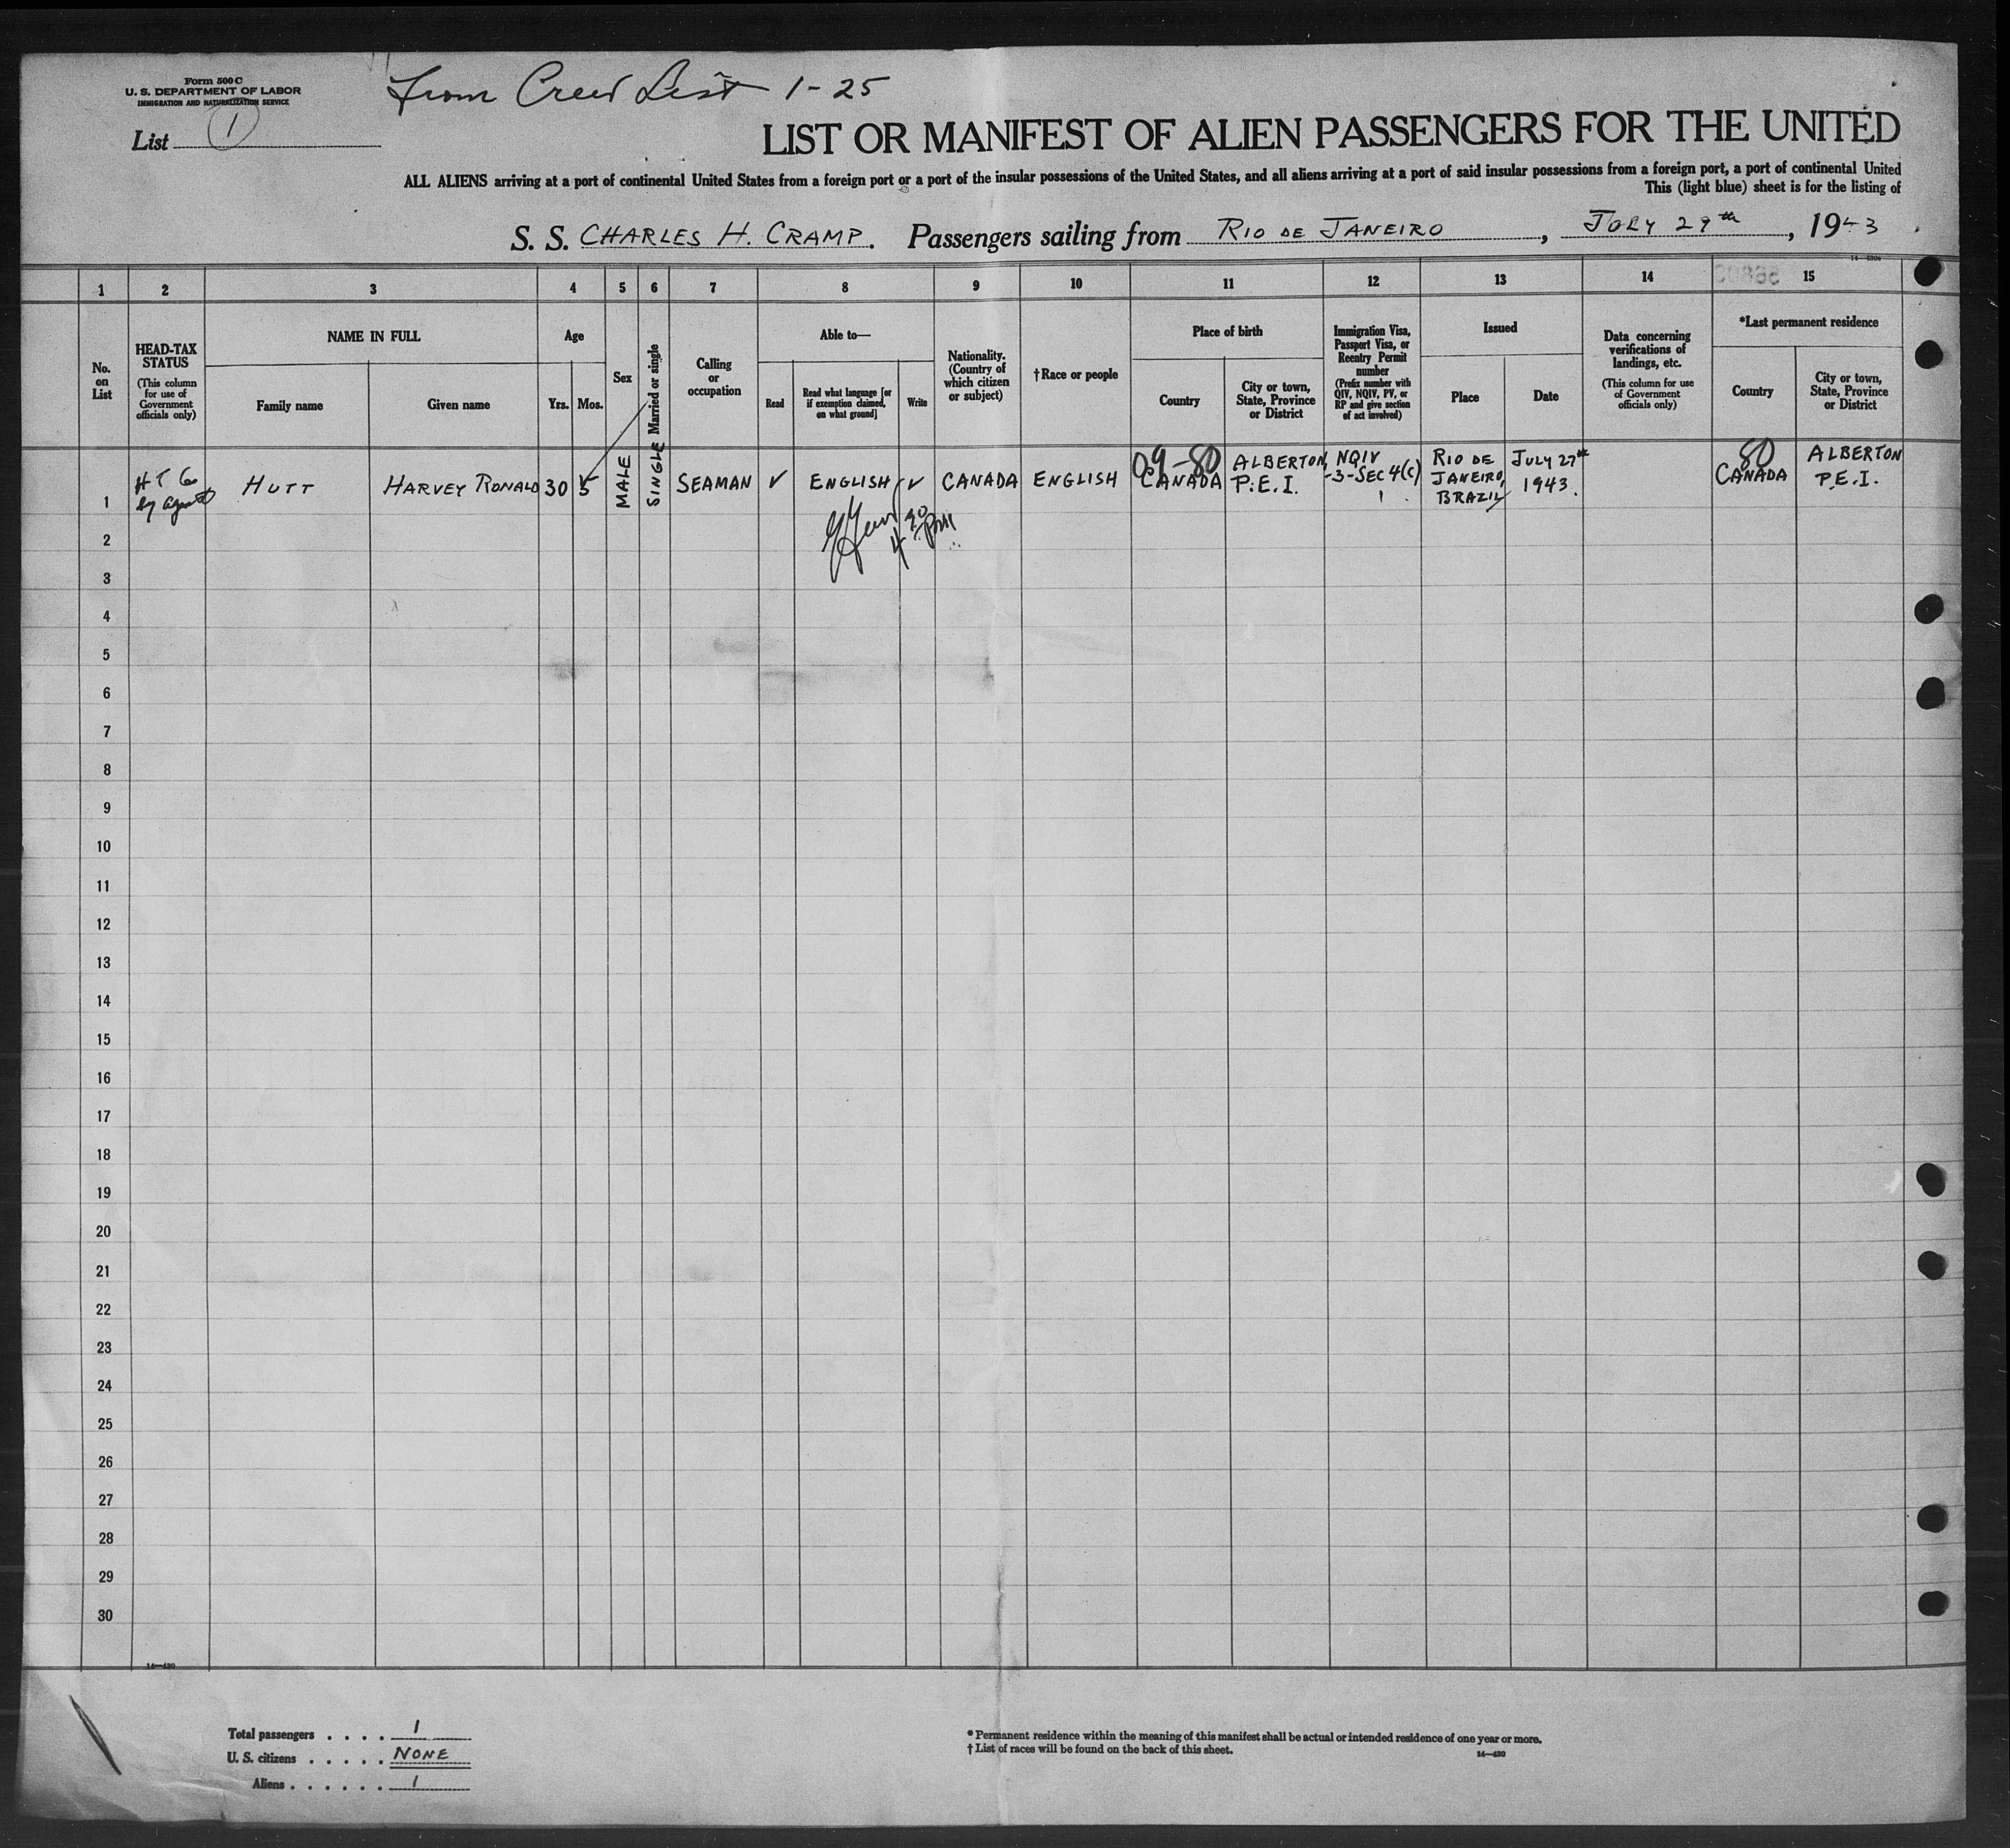 Form 500 C
U. S. DEPARTMENT OF LABOR
IMMIGRATION AND NATURALIZATION SERVICE
From Crew List 1-25
List 1
LIST OR MANIFEST OF ALIEN PASSENGERS FOR THE UNITED
ALL ALIENS arriving at a port of continental United States from a foreign port or a port of the insular possessions of the United States, and all aliens arriving at a port of said insular possessions from a foreign port, a port of continental United
This (light blue) sheet is for the listing of
S. S. CHARLES H. CRAMP. Passengers sailing from RIO DE JANEIRO, JULY 29th, 1943
1 2 3 4 5 6 7 8 9 10 11 12 13 14 15
No. on List
HEAD-TAX STATUS
(This column for use of Government officials only)
NAME IN FULL
Family name
Given name
Age
Yrs.
Mos.
Sex
Married or single
Calling or occupation
Able to—
Read
Read what language [or if exemption claimed, on what ground]
Write
Nationality. (Country of which citizen or subject)
†Race or people
Place of birth
Country
City or town, State, Province or District
Immigration Visa, Passport Visa, or Reentry Permit number
(Prefix number with QIV, NQIV, PV, or RP and give section of act involved)
Issued
Place
Date
Data concerning verifications of landings, etc.
(This column for use of Government officials only)
*Last permanent residence
Country
City or town, State, Province or District
1 HUTT HARVEY RONALD 30 5 MALE SINGLE SEAMAN ✓ ENGLISH ✓ CANADA ENGLISH CANADA ALBERTON, P.E.I. NQIV -3-SEC 4(c) RIO DE JANEIRO, BRAZIL JULY 27th 1943. 80 CANADA ALBERTON P.E.I.
2
3
4
5
6
7
8
9
10
11
12
13
14
15
16
17
18
19
20
21
22
23
24
25
26
27
28
29
30
14—430
Total passengers . . . . 1
U. S. citizens . . . . . NONE
Aliens . . . . . . 1
* Permanent residence within the meaning of this manifest shall be actual or intended residence of one year or more.
† List of races will be found on the back of this sheet.
14—430